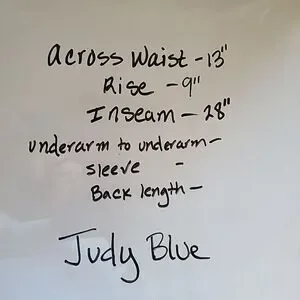 Across Waist - 13"
Rise - 9"
Inseam - 28"
underarm to underarm -
sleeve -
Back length -
Judy Blue